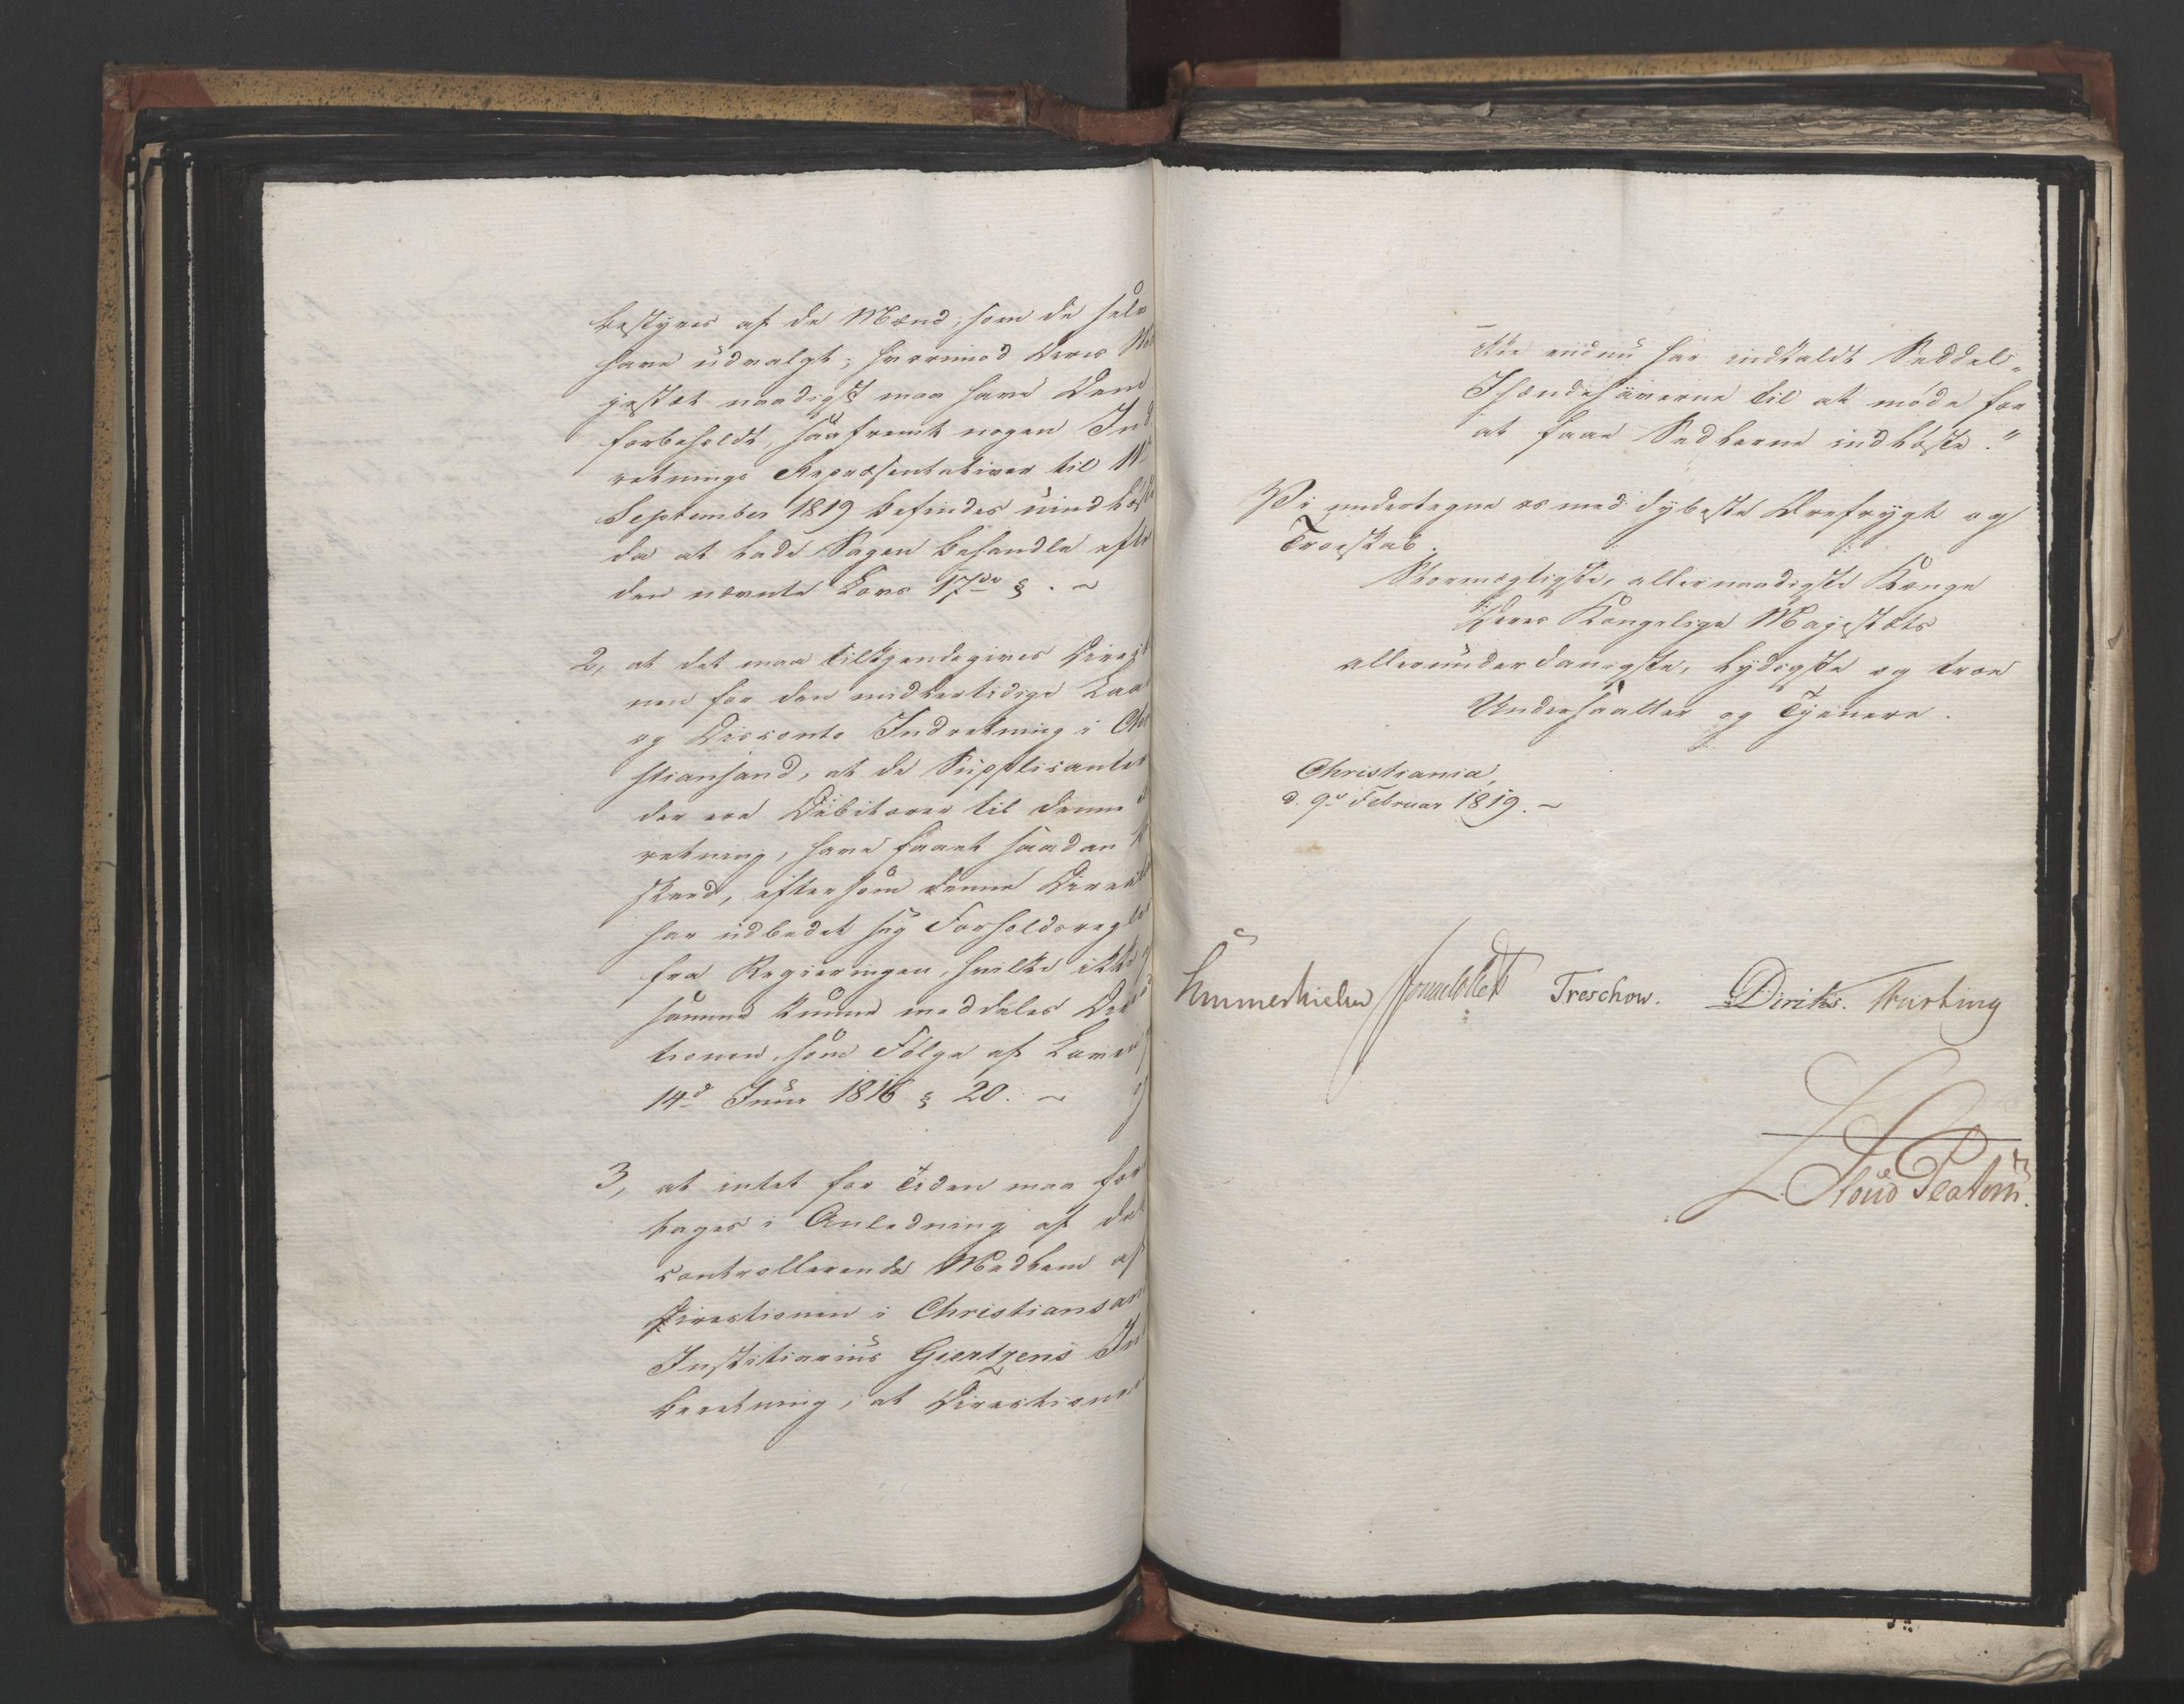 bestyres af de Mænd, som de selv
have udvalgt; hvorimod Deres Ma
jestæt naadigst maa have Dem
forbeholdt, saafremt nogen Ind
retnings Repræsentativer til
September 1819 befindes uindløst
da at lade Sagen behandle efter
den nævnte Lovs 17de §. ~
2, at det maa tilkjendegives Direct
nen for den midlertidige Laa
og Disconto Indretning i Chri
stiansand, at de Supplicanter
der ere Debitorer til denne
retning, have faaet saadan
sked, eftersom denne Direct
har udbedet sig Forholdsregler
fra Regieringen, hvilke ikke
samme kunne meddeles Dir
tionen som Følge af Loven
14d Juni 1816 § 20. ~
3, at intet for Tiden maa fore
tages i Anledning af det
controllerende Medlem af
Directionen i Christiansan
Justitiarius Giertzens In
beretning, at Directionen
ikke endnu har indkaldt Seddel-
Ihændehaverne til at møde for
at faae Sedlerne indløste."
Vi undertegne os med dybeste Ærefrygt og
Troeskab.
Stormægtigste, allernaadigste Konge
Deres Kongelige Majestæts
allerunderdanigste, lydigste og troe
Undersaatter og Tjenere.
Christiania,
d. 9de Februar 1819. ~
Hummerhielm Sommerfeldt Treschow. Diriks. Fasting
Stoud Platou